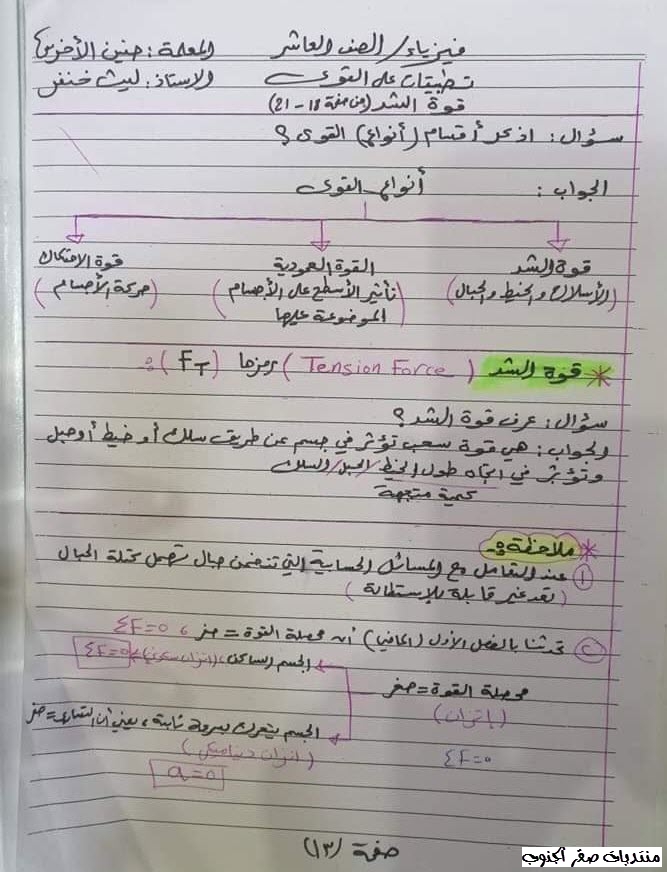 فيزياء / الصف العاشر
المعلمة : حنين الأخرس
تطبيقات على القوى
الاستاذ : ليث خنفر
قوة الشد (من صفحة 18 - 21)
سؤال : اذكر أقسام (أنواع) القوى ؟
الجواب : أنواع القوى
قوة الشد
(الأسلاك والخيط والحبال)
القوة العمودية
(تأثير الأسطح على الأجسام
الموضوعة عليها)
قوة الاحتكاك
(حركة الأجسام)
* قوة الشد (Tension Force) رمزها (FT) :
سؤال : عرف قوة الشد ؟
الجواب : هي قوة سحب تؤثر في جسم عن طريق سلك أو خيط أو حبل
وتؤثر في اتجاه طول الخيط / الحبل / السلك
كمية متجهة
* ملاحظة :
① عند التعامل مع المسائل الحسابية التي تتضمن حبال تهمل كتلة الحبال
(تعد غير قابلة للإستطالة)
② تحدثنا بالفصل الأول (الماضي) أن محصلة القوة = صفر ، ΣF=0
محصلة القوة = صفر
(إتزان)
ΣF=0
الجسم الساكن ، (اتزان سكوني) ΣF=0
الجسم يتحرك بسرعة ثابتة ، يعني أن التسارع = صفر
(اتزان ديناميكي)
a=0
صفحة (١٣)
منتديات صقر الجنوب